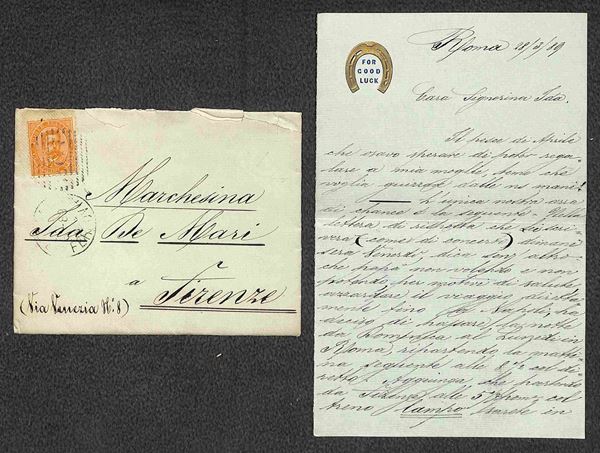 Marchesina
Ida De Mari
a
Firenze
(Via Venezia N.° 8)
FOR
GOOD
LUCK
Roma 28/3/89
Cara Signorina Ida.
Il pesce di Aprile
che osavo sperare di poter rega-
lare a mia moglie, temo che
voglia guizzar dalle mani!
L'unica nostra
di chance è la seguente. Nella
lettera di che Le scri-
verà (come di concerto) dimani
sera Venerdì, dica
che papà non volendo e non
potendo per motivi di salute,
azzardare il viaggio diretta-
mente fino a Napoli, ha
deciso di passar la notte
da Domenica al Lunedì in
Roma, ripartendo la matti-
na seguente alle 8 col di-
retto. Aggiunga che partendo
da Firenze alle col
treno lampo sarete in